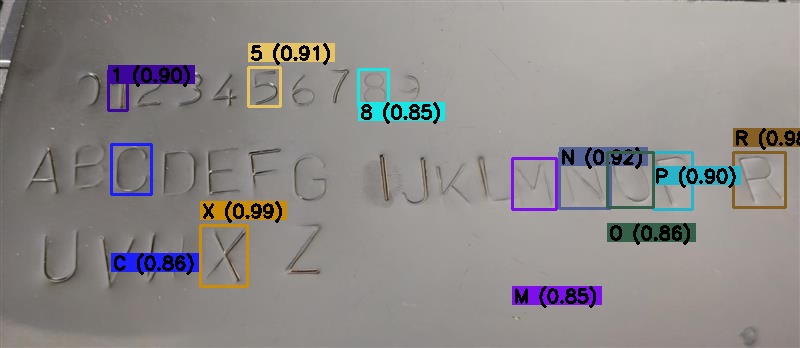 5 (0.91)
1 (0.90)
0123456789
8 (0.85)
R (0.98
N (0.92)
ABCDEFG IJKLMNOP R
P (0.90)
X (0.99)
O (0.86)
UVWX Z
C (0.86)
M (0.85)